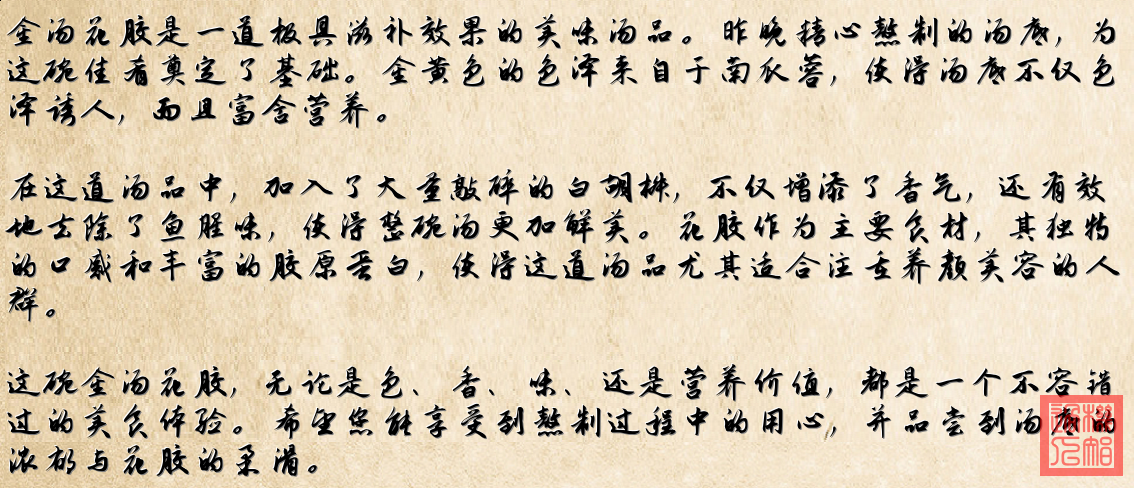 金汤花胶是一道极具滋补效果的美味汤品。昨晚精心熬制的汤底，为
这碗佳肴奠定了基础。金黄色的色泽来自于南瓜蓉，使得汤底不仅色
泽诱人，而且富含营养。
在这道汤品中，加入了大量敲碎的白胡椒，不仅增添了香气，还有效
地去除了鱼腥味，使得整碗汤更加鲜美。花胶作为主要食材，其独特
的口感和丰富的胶原蛋白，使得这道汤品尤其适合注重养颜美容的人
群。
这碗金汤花胶，无论是色、香、味、还是营养价值，都是一个不容错
过的美食体验。希望您能享受到熬制过程中的用心，并品尝到汤底的
浓郁与花胶的柔滑。